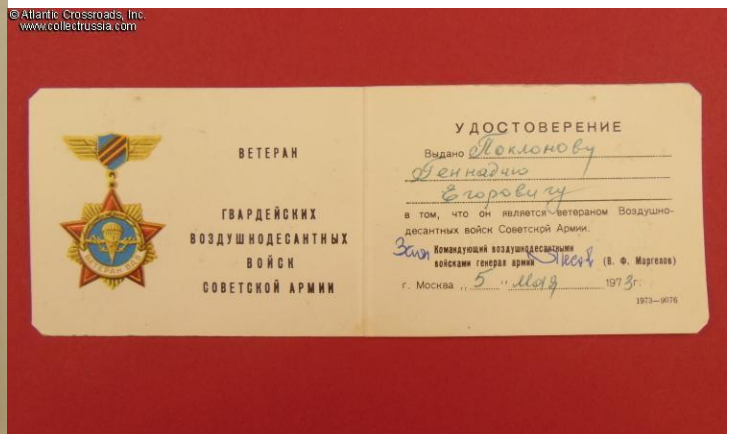 © Atlantic Crossroads, Inc.
www.collectrussia.com
ВЕТЕРАН
ГВАРДЕЙСКИХ
ВОЗДУШНОДЕСАНТНЫХ
ВОЙСК
СОВЕТСКОЙ АРМИИ
ВЕТЕРАН ВДВ
УДОСТОВЕРЕНИЕ
Выдано Поклонову
Геннадию
Егоровичу
в том, что он является ветераном Воздушно-
десантных войск Советской Армии.
Зам Командующий воздушнодесантными
войсками генерал армии (В. Ф. Маргелов)
г. Москва „ 5 " мая 1973г.
1973—9076